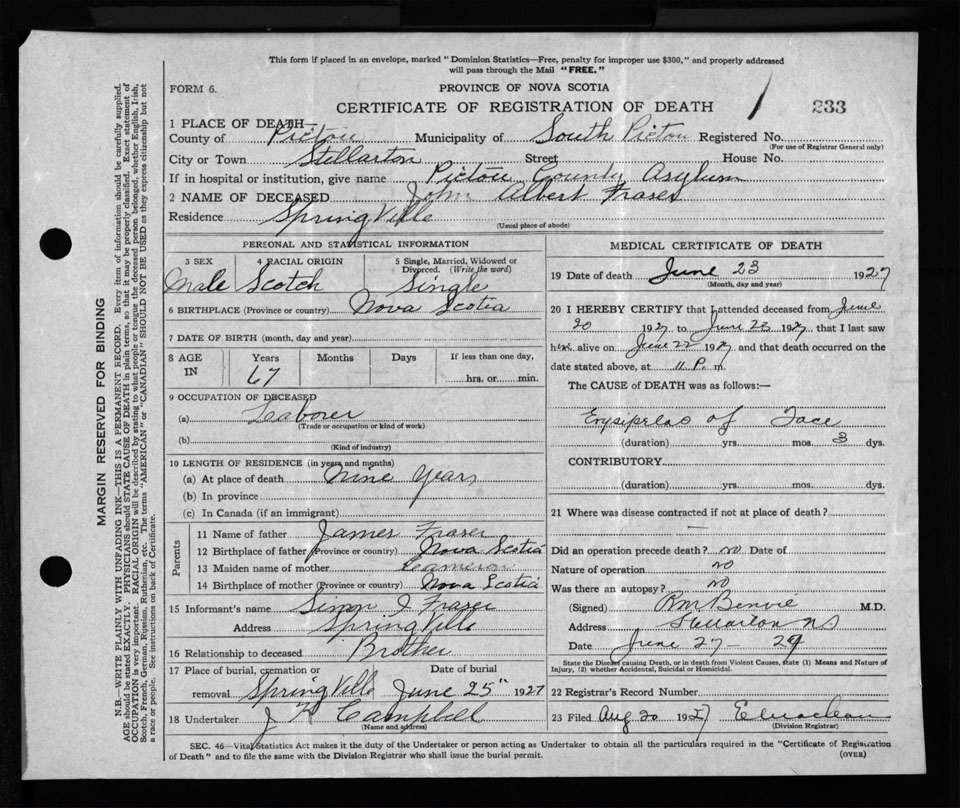 This form if placed in an envelope, marked "Dominion Statistics—Free, penalty for improper use $300," and properly addressed
will pass through the Mail "FREE."
FORM 6.
PROVINCE OF NOVA SCOTIA
CERTIFICATE OF REGISTRATION OF DEATH
1
233
1 PLACE OF DEATH—
County of Pictou Municipality of South Pictou Registered No.
(For use of Registrar General only)
City or Town Stellarton Street House No.
If in hospital or institution, give name Pictou County Asylum
2 NAME OF DECEASED John Albert Fraser
Residence SpringVille
(Usual place of abode)
PERSONAL AND STATISTICAL INFORMATION
3 SEX
Male
4 RACIAL ORIGIN
Scotch
5 Single, Married, Widowed or
Divorced. (Write the word)
Single
6 BIRTHPLACE (Province or country) Nova Scotia
7 DATE OF BIRTH (month, day and year)
8 AGE
IN
Years
67
Months
Days
If less than one day,
hrs. or min.
9 OCCUPATION OF DECEASED
(a) Laborer
(Trade or occupation or kind of work)
(b)
(Kind of industry)
10 LENGTH OF RESIDENCE (in years and months)
(a) At place of death nine years
(b) In province
(c) In Canada (if an immigrant)
Parents
11 Name of father James Fraser
12 Birthplace of father (Province or country) Nova Scotia
13 Maiden name of mother Cameron
14 Birthplace of mother (Province or country) Nova Scotia
15 Informant's name Simon J Fraser
Address SpringVille
16 Relationship to deceased Brother
17 Place of burial, cremation or Date of burial
removal SpringVille June 25" 1927
18 Undertaker Campbell
(Name and address)
MEDICAL CERTIFICATE OF DEATH
19 Date of death June 23 1927
(Month, day and year)
20 I HEREBY CERTIFY that I attended deceased from June
20 1927 to June 23 1927, that I last saw
him alive on June 22 1927 and that death occurred on the
date stated above, at 11 P. m.
The CAUSE of DEATH was as follows:—
Erysipelas of Face
(duration) yrs. mos. 3 dys.
CONTRIBUTORY
(duration) yrs. mos. dys.
21 Where was disease contracted if not at place of death?
—
Did an operation precede death? no Date of
Nature of operation no
Was there an autopsy? no
(Signed) Benvie M.D.
Address Stellarton NS
Date June 27 - 29
State the Disease causing Death, or in death from Violent Causes, state (1) Means and Nature of
Injury, (2) whether Accidental, Suicidal or Homicidal.
22 Registrar's Record Number
23 Filed Aug 20 1927
(Division Registrar)
SEC. 46—Vital Statistics Act makes it the duty of the Undertaker or person acting as Undertaker to obtain all the particulars required in the "Certificate of Registration
of Death" and to file the same with the Division Registrar who shall issue the burial permit.
(OVER)
MARGIN RESERVED FOR BINDING
N.B.—WRITE PLAINLY WITH UNFADING INK—THIS IS A PERMANENT RECORD. Every item of information should be carefully supplied.
AGE should be stated EXACTLY. PHYSICIANS should STATE CAUSE OF DEATH in plain terms, so that it may be properly classified. Exact statement of
OCCUPATION is very important. RACIAL ORIGIN will be described by stating to what people or tongue the deceased person belonged, whether English, Irish,
Scotch, French, German, Russian, Ruthenian, etc. The terms "AMERICAN" or "CANADIAN" SHOULD NOT BE USED as they express citizenship but not
a race or people. See instructions on back of Certificate.